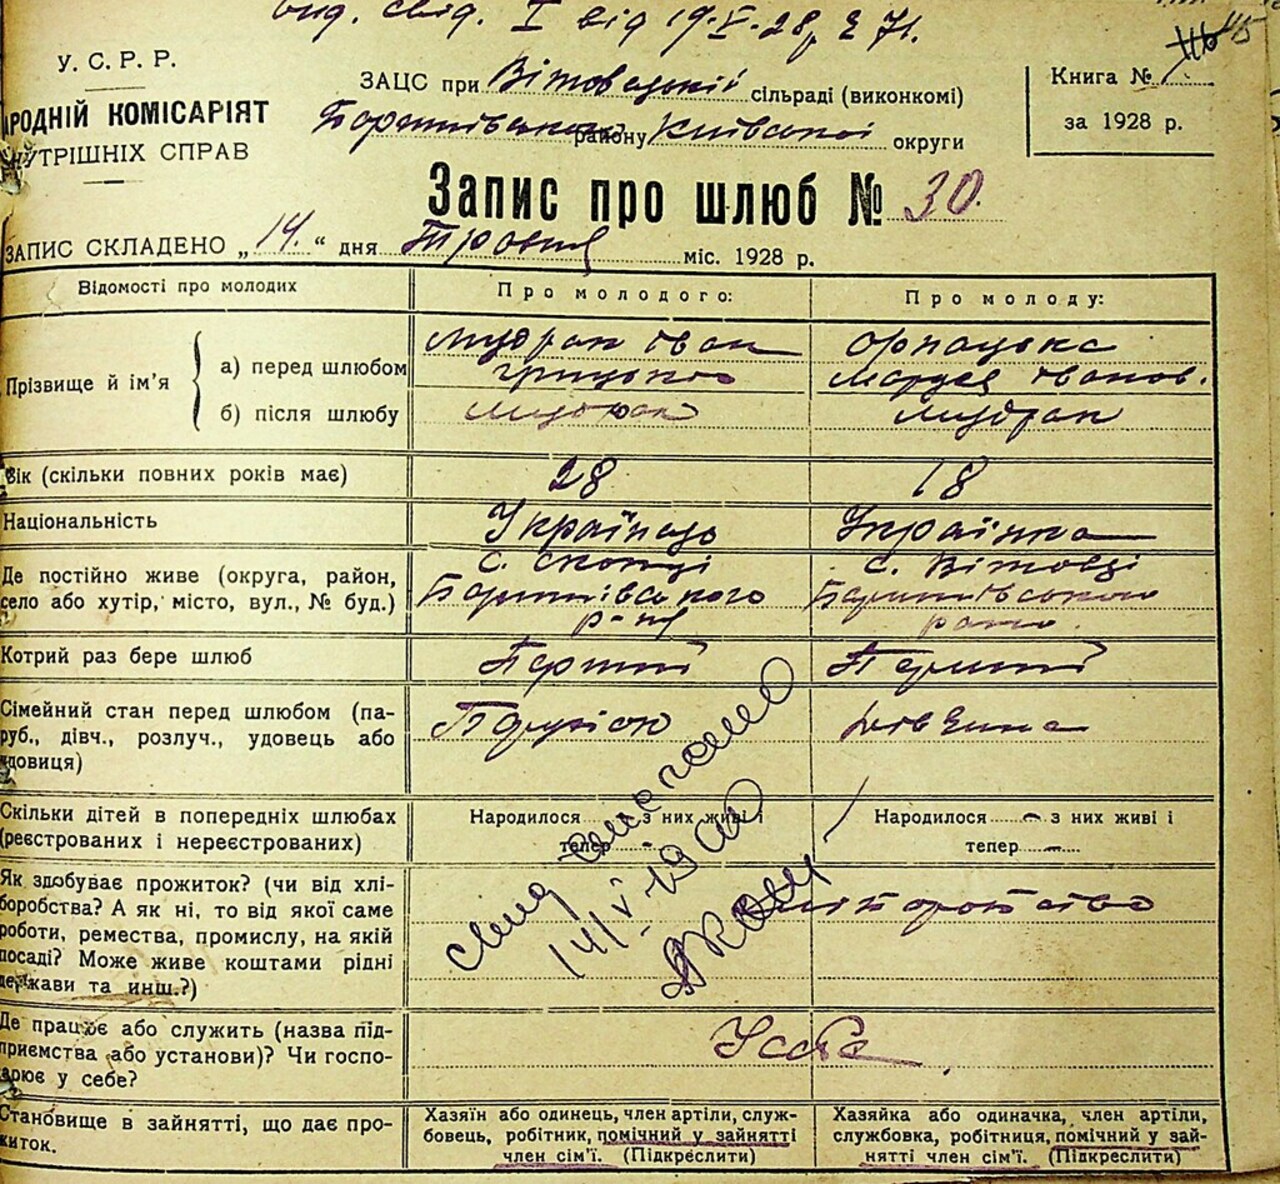 вид. свід. I від 19-V-28р № 71.
45
У. С. Р. Р.
РОДНІЙ КОМІСАРІЯТ
УТРІШНІХ СПРАВ
ЗАЦС при Вітовецькій сільраді (виконкомі)
району Київської округи
Книга №
за 1928 р.
Запис про шлюб № 30.
ЗАПИС СКЛАДЕНО „ 14. “ дня Травня міс. 1928 р.
Відомості про молодих
Про молодого:
Про молоду:
Прізвище й ім'я
а) перед шлюбом
б) після шлюбу
Мудрак Іван
Грицьків
Мудрак
Іванов.
Мудрак
Вік (скільки повних років має)
28
18
Національність
Українець
Українка
Де постійно живе (округа, район,
село або хутір, місто, вул., № буд.)
с. Скопці
Баришівського
р-ну
с. Вітовці
Баришівського
Котрий раз бере шлюб
Перший
Перший
Сімейний стан перед шлюбом (па-
руб., дівч., розлуч., удовець або
удовиця)
Парубок
Дівчина
Скільки дітей в попередніх шлюбах
(реєстрованих і нереєстрованих)
Народилося - з них живі і
тепер -
Народилося - з них живі і
тепер -
Як здобуває прожиток? (чи від хлі-
боробства? А як ні, то від якої саме
роботи, ремества, промислу, на якій
посаді? Може живе коштами рідні
держави та инш.?)
хліборобство
14/V-19
Де працює або служить (назва під-
приємства або установи)? Чи госпо-
арює у себе?
У себе
Становище в зайнятті, що дає про-
житок.
Хазяїн або одинець, член артіли, служ-
бовець, робітник, помічний у зайнятті
член сім'ї. (Підкреслити)
Хазяйка або одиначка, член артіли,
службовка, робітниця, помічний у зай-
нятті член сім'ї. (Підкреслити)